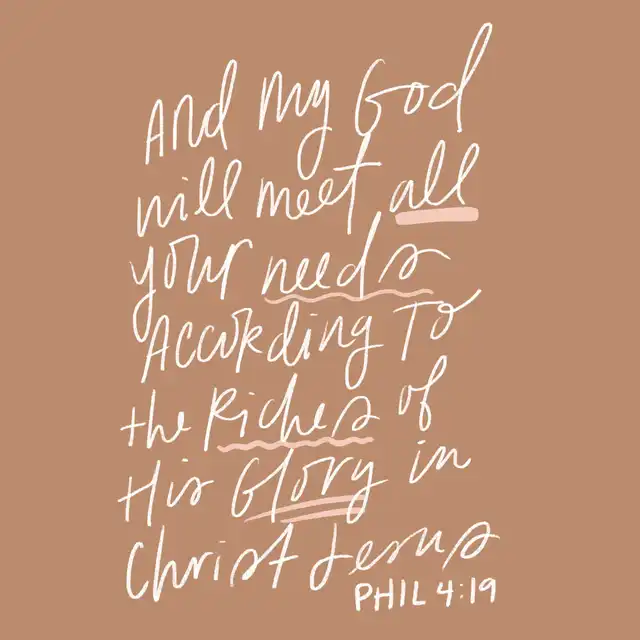 And my God
will meet all
your needs
According to
the Riches of
His Glory in
Christ Jesus
PHIL 4:19